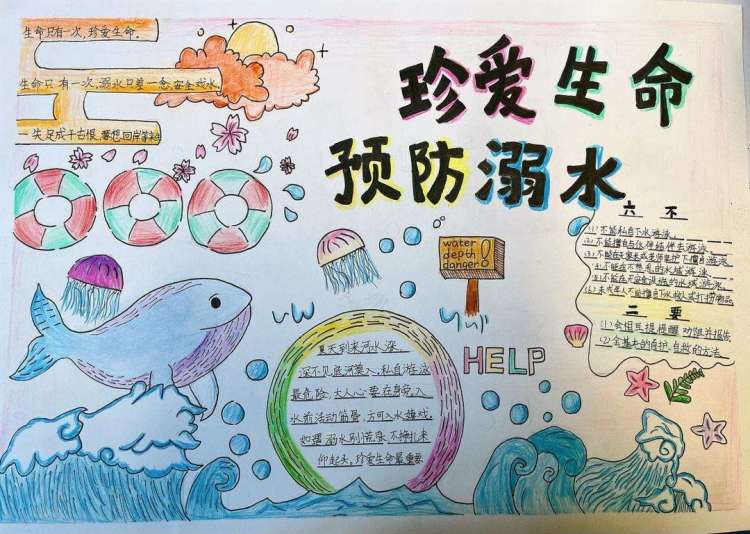 生命只有一次,珍爱生命。
生命只有一次,溺水只差一念,安全戏水
一失足成千古恨,
珍爱生命
预防溺水
六不
(1)不能私自下水游泳
(2)不能擅自与他人结伴去游泳
(3)不能在无家长或老师带护下擅自游泳
(4)不能在不熟悉的水域游泳
(5)不能在不安全设施的水域游泳
(6)未成年人不能擅自下水救人或打捞物品
二要
(1)会相互提醒 劝阻并报告
(2)会基本的自护、自救的方法
water
depth
danger!
HELP
夏天到来河水深
深不见底河莫入,私自游泳
最危险,大人心要在身旁,入
水前活动筋骨,方可入水嬉戏
如遇溺水别慌张,不挣扎来
仰起头,珍爱生命最重要